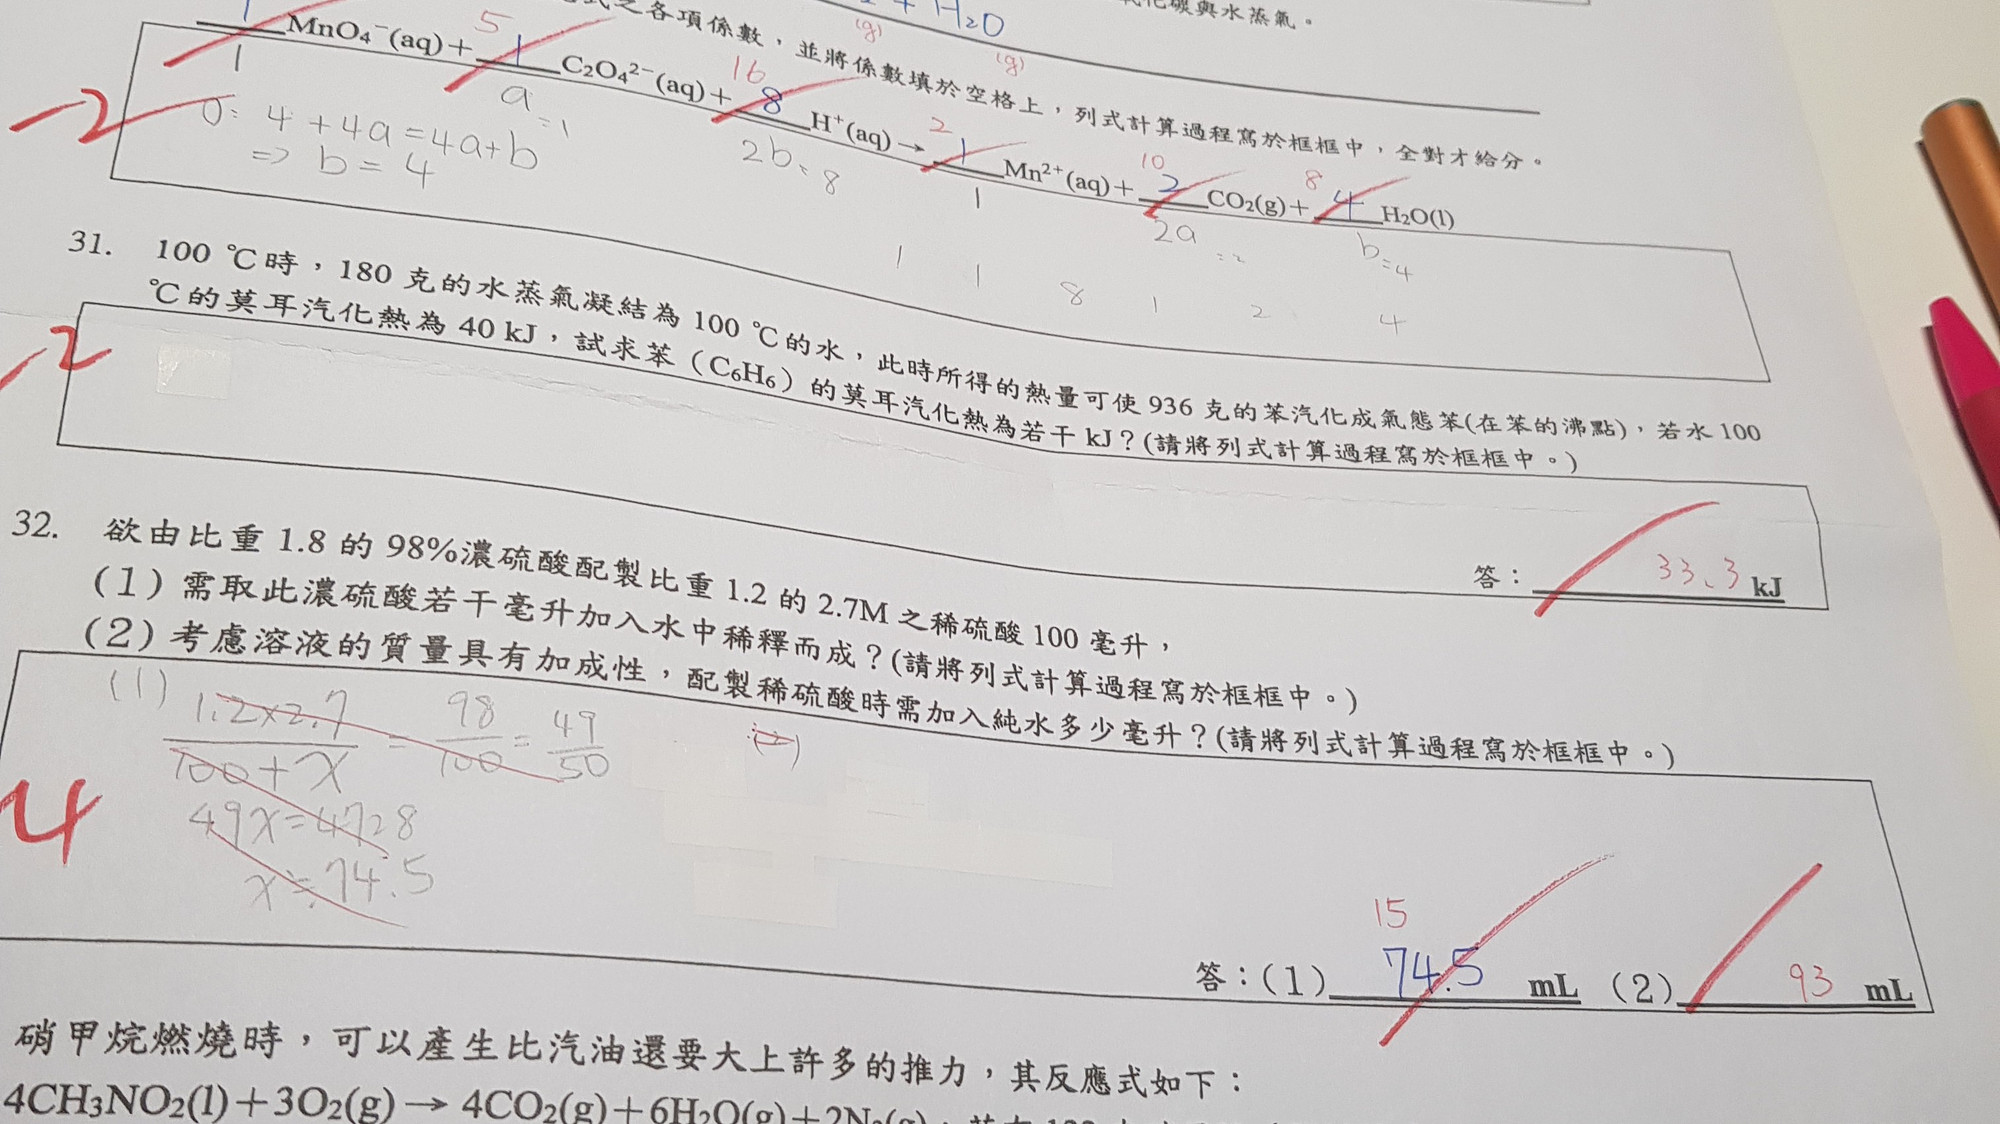 化碳與水蒸氣。
+ H₂O
(g)
(g)
式之各項係數，並將係數填於空格上，列式計算過程寫於框框中，全對才給分。
2
5
16
2
10
8
1 MnO₄⁻(aq)+ 1 C₂O₄²⁻(aq)+ 8 H⁺(aq)→ 1 Mn²⁺(aq)+ 2 CO₂(g)+ 4 H₂O(l)
1
a=1
2b=8
1
2a=2
b=4
-2
O: 4+4a=4a+b
=> b=4
1 1 8 1 2 4
31. 100 ℃時，180 克的水蒸氣凝結為 100 ℃的水，此時所得的熱量可使 936 克的苯汽化成氣態苯(在苯的沸點)，若水 100
℃的莫耳汽化熱為 40 kJ，試求苯（C₆H₆）的莫耳汽化熱為若干 kJ？(請將列式計算過程寫於框框中。)
-2
答： 33.3 kJ
32. 欲由比重 1.8 的 98%濃硫酸配製比重 1.2 的 2.7M 之稀硫酸 100 毫升，
(1) 需取此濃硫酸若干毫升加入水中稀釋而成？(請將列式計算過程寫於框框中。)
(2) 考慮溶液的質量具有加成性，配製稀硫酸時需加入純水多少毫升？(請將列式計算過程寫於框框中。)
(1) 1.2×2.7/100+x = 98/100 = 49/50
(2)
49x=4728
x≒74.5
4
15
答：(1) 74.5 mL (2) 93 mL
硝甲烷燃燒時，可以產生比汽油還要大上許多的推力，其反應式如下：
4CH₃NO₂(l)+3O₂(g)→ 4CO₂(g)+6H₂O(g)+2N₂(g)，